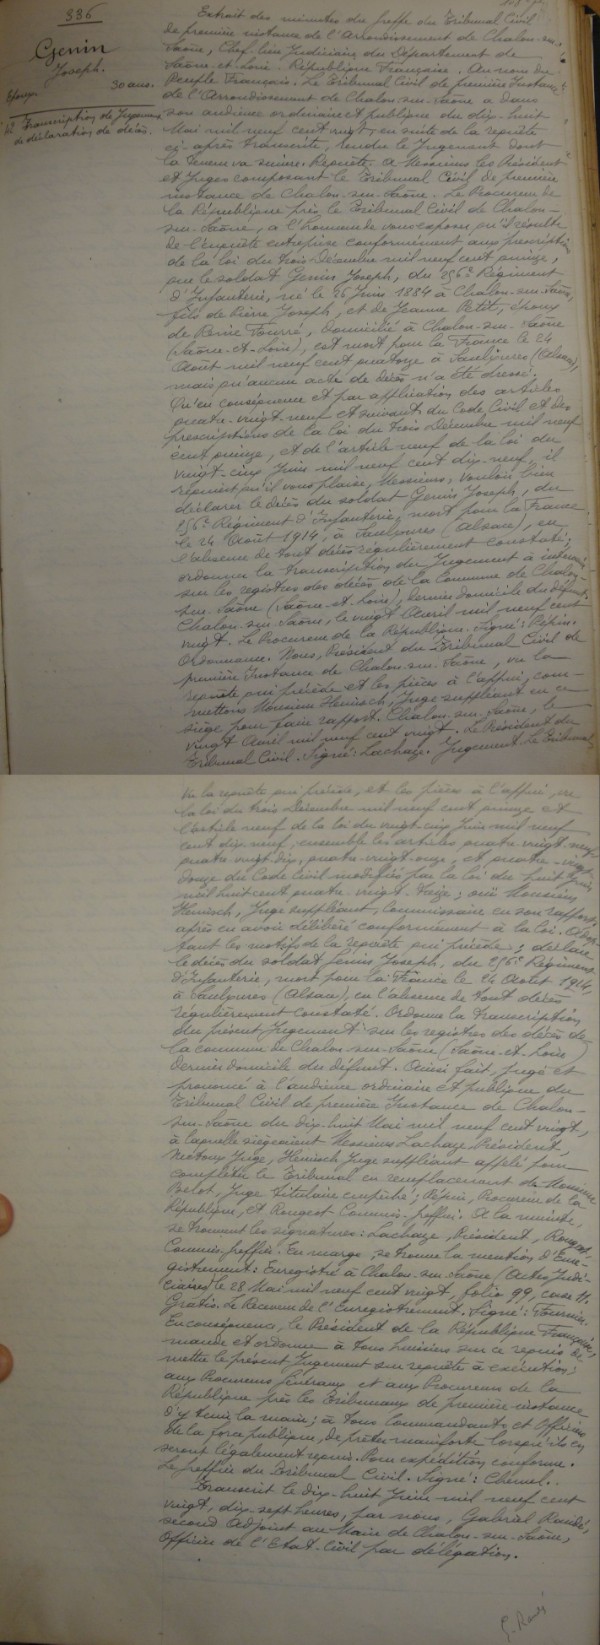 336
Genin
Joseph.
Époux 30 ans.
Transcription de Jugement
de déclaration de décès.
Extrait des minutes du greffe du Tribunal Civil
de première instance de l'Arrondissement de Chalon-sur-
Saône, Chef-lieu Judiciaire du Département de
Saône-et-Loire. République Française. Au nom du
Peuple Français. Le Tribunal Civil de première Instance
de l'Arrondissement de Chalon-sur-Saône a dans
son audience ordinaire et publique du dix-huit
Mai mil neuf cent vingt, en suite de la requête
ci-après transcrite, rendu le Jugement dont
la teneur va suivre. Requête. A Messieurs les Président
et Juges composant le Tribunal Civil de première
instance de Chalon-sur-Saône. Le Procureur de
la République près le Tribunal Civil de Chalon-
sur-Saône, a l'honneur de vous exposer, qu'il résulte
de l'enquête entreprise conformément aux prescriptions
de la loi du trois Décembre mil neuf cent quinze,
que le soldat Genin Joseph, du 256e Régiment
d'Infanterie, né le 26 Juin 1884 à Chalon-sur-Saône,
fils de Pierre Joseph, et de Jeanne Petit, époux
de Reine Fourré, domicilié à Chalon-sur-Saône
(Saône-et-Loire), est mort pour la France le 24
Août mil neuf cent quatorze à Saulxures (Alsace),
mais qu'aucun acte de décès n'a été dressé.
Qu'en conséquence et par application des articles
quatre-vingt-neuf et suivants du Code Civil et des
prescriptions de la loi du trois Décembre mil neuf
cent quinze, et de l'article neuf de la loi du
vingt-cinq Juin mil neuf cent dix-neuf, il
requiert qu'il vous plaise, Messieurs, vouloir bien
déclarer le décès du soldat Genin Joseph, du
256e Régiment d'Infanterie, mort pour la France
le 24 Août 1914, à Saulxures (Alsace), en
l'absence de tout décès régulièrement constaté;
ordonner la transcription du Jugement à intervenir
sur les registres des décès de la Commune de Chalon-
sur-Saône (Saône-et-Loire), dernier domicile du défunt.
Chalon-sur-Saône, le vingt Avril mil neuf cent
vingt. Le Procureur de la République. Signé: Répin.
Ordonnance. Nous, Président du Tribunal Civil de
première Instance de Chalon-sur-Saône, vu la
requête qui précède et les pièces à l'appui, com-
mettons Monsieur Henisch, Juge suppléant en ce
siège pour faire rapport. Chalon-sur-Saône, le
vingt Avril mil neuf cent vingt. Le Président du
Tribunal Civil. Signé: Lachaze. Jugement. Le Tribunal
Vu la requête qui précède, et les pièces à l'appui, vu
la loi du trois Décembre mil neuf cent quinze et
l'article neuf de la loi du vingt-cinq Juin mil neuf
cent dix-neuf, ensemble les articles quatre-vingt-neuf
quatre-vingt-dix, quatre-vingt-onze, et quatre-vingt-
douze du Code Civil modifiés par la loi du huit Juin
mil huit cent quatre-vingt-treize; ouï Monsieur
Henisch, Juge suppléant, Commissaire en son rapport,
après en avoir délibéré conformément à la loi. Adop-
tant les motifs de la requête qui précède; déclare
le décès du soldat Genin Joseph, du 256e Régiment
d'Infanterie, mort pour la France le 24 Août 1914,
à Saulxures (Alsace), en l'absence de tout décès
régulièrement constaté. Ordonne la transcription
du présent Jugement sur les registres des décès de
la commune de Chalon-sur-Saône (Saône-et-Loire)
dernier domicile du défunt. Ainsi fait, jugé et
prononcé à l'audience ordinaire et publique du
Tribunal Civil de première Instance de Chalon-
sur-Saône du dix-huit Mai mil neuf cent vingt,
à laquelle siégeaient Messieurs Lachaze, Président,
Nectoux Juge, Henisch Juge suppléant appelé pour
compléter le Tribunal en remplacement de Monsieur
Belot, Juge titulaire empêché; Répin, Procureur de la
République, et Rougeot Commis-greffier. A la minute,
se trouvent les signatures: Lachaze, Président, Rougeot,
Commis-greffier. En marge se trouve la mention d'Enre-
gistrement: Enregistré à Chalon-sur-Saône (Actes Judi-
ciaires) le 28 Mai mil neuf cent vingt, folio 99, case 11.
Gratis. Le Receveur de l'Enregistrement. Signé: Fournier.
En conséquence, le Président de la République Française,
mande et ordonne à tous huissiers sur ce requis de
mettre le présent Jugement sur requête à exécution;
aux Procureurs Généraux et aux Procureurs de la
République près les Tribunaux de première instance
d'y tenir la main; à tous Commandants et Officiers
de la force publique, de prêter mainforte lorsqu'ils en
seront légalement requis. Pour expédition conforme.
Le greffier du Tribunal Civil. Signé: Chemel.
Transcrit le dix-huit Juin mil neuf cent
vingt, dix-sept heures, par nous, Gabriel Randé,
second Adjoint au Maire de Chalon-sur-Saône,
Officier de l'Etat-Civil par délégation.
G. Randé